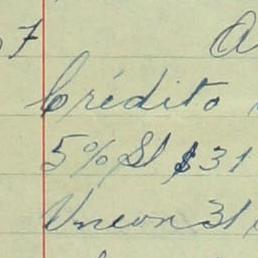 7 a
Crédito
5% Sl $31
Union 31